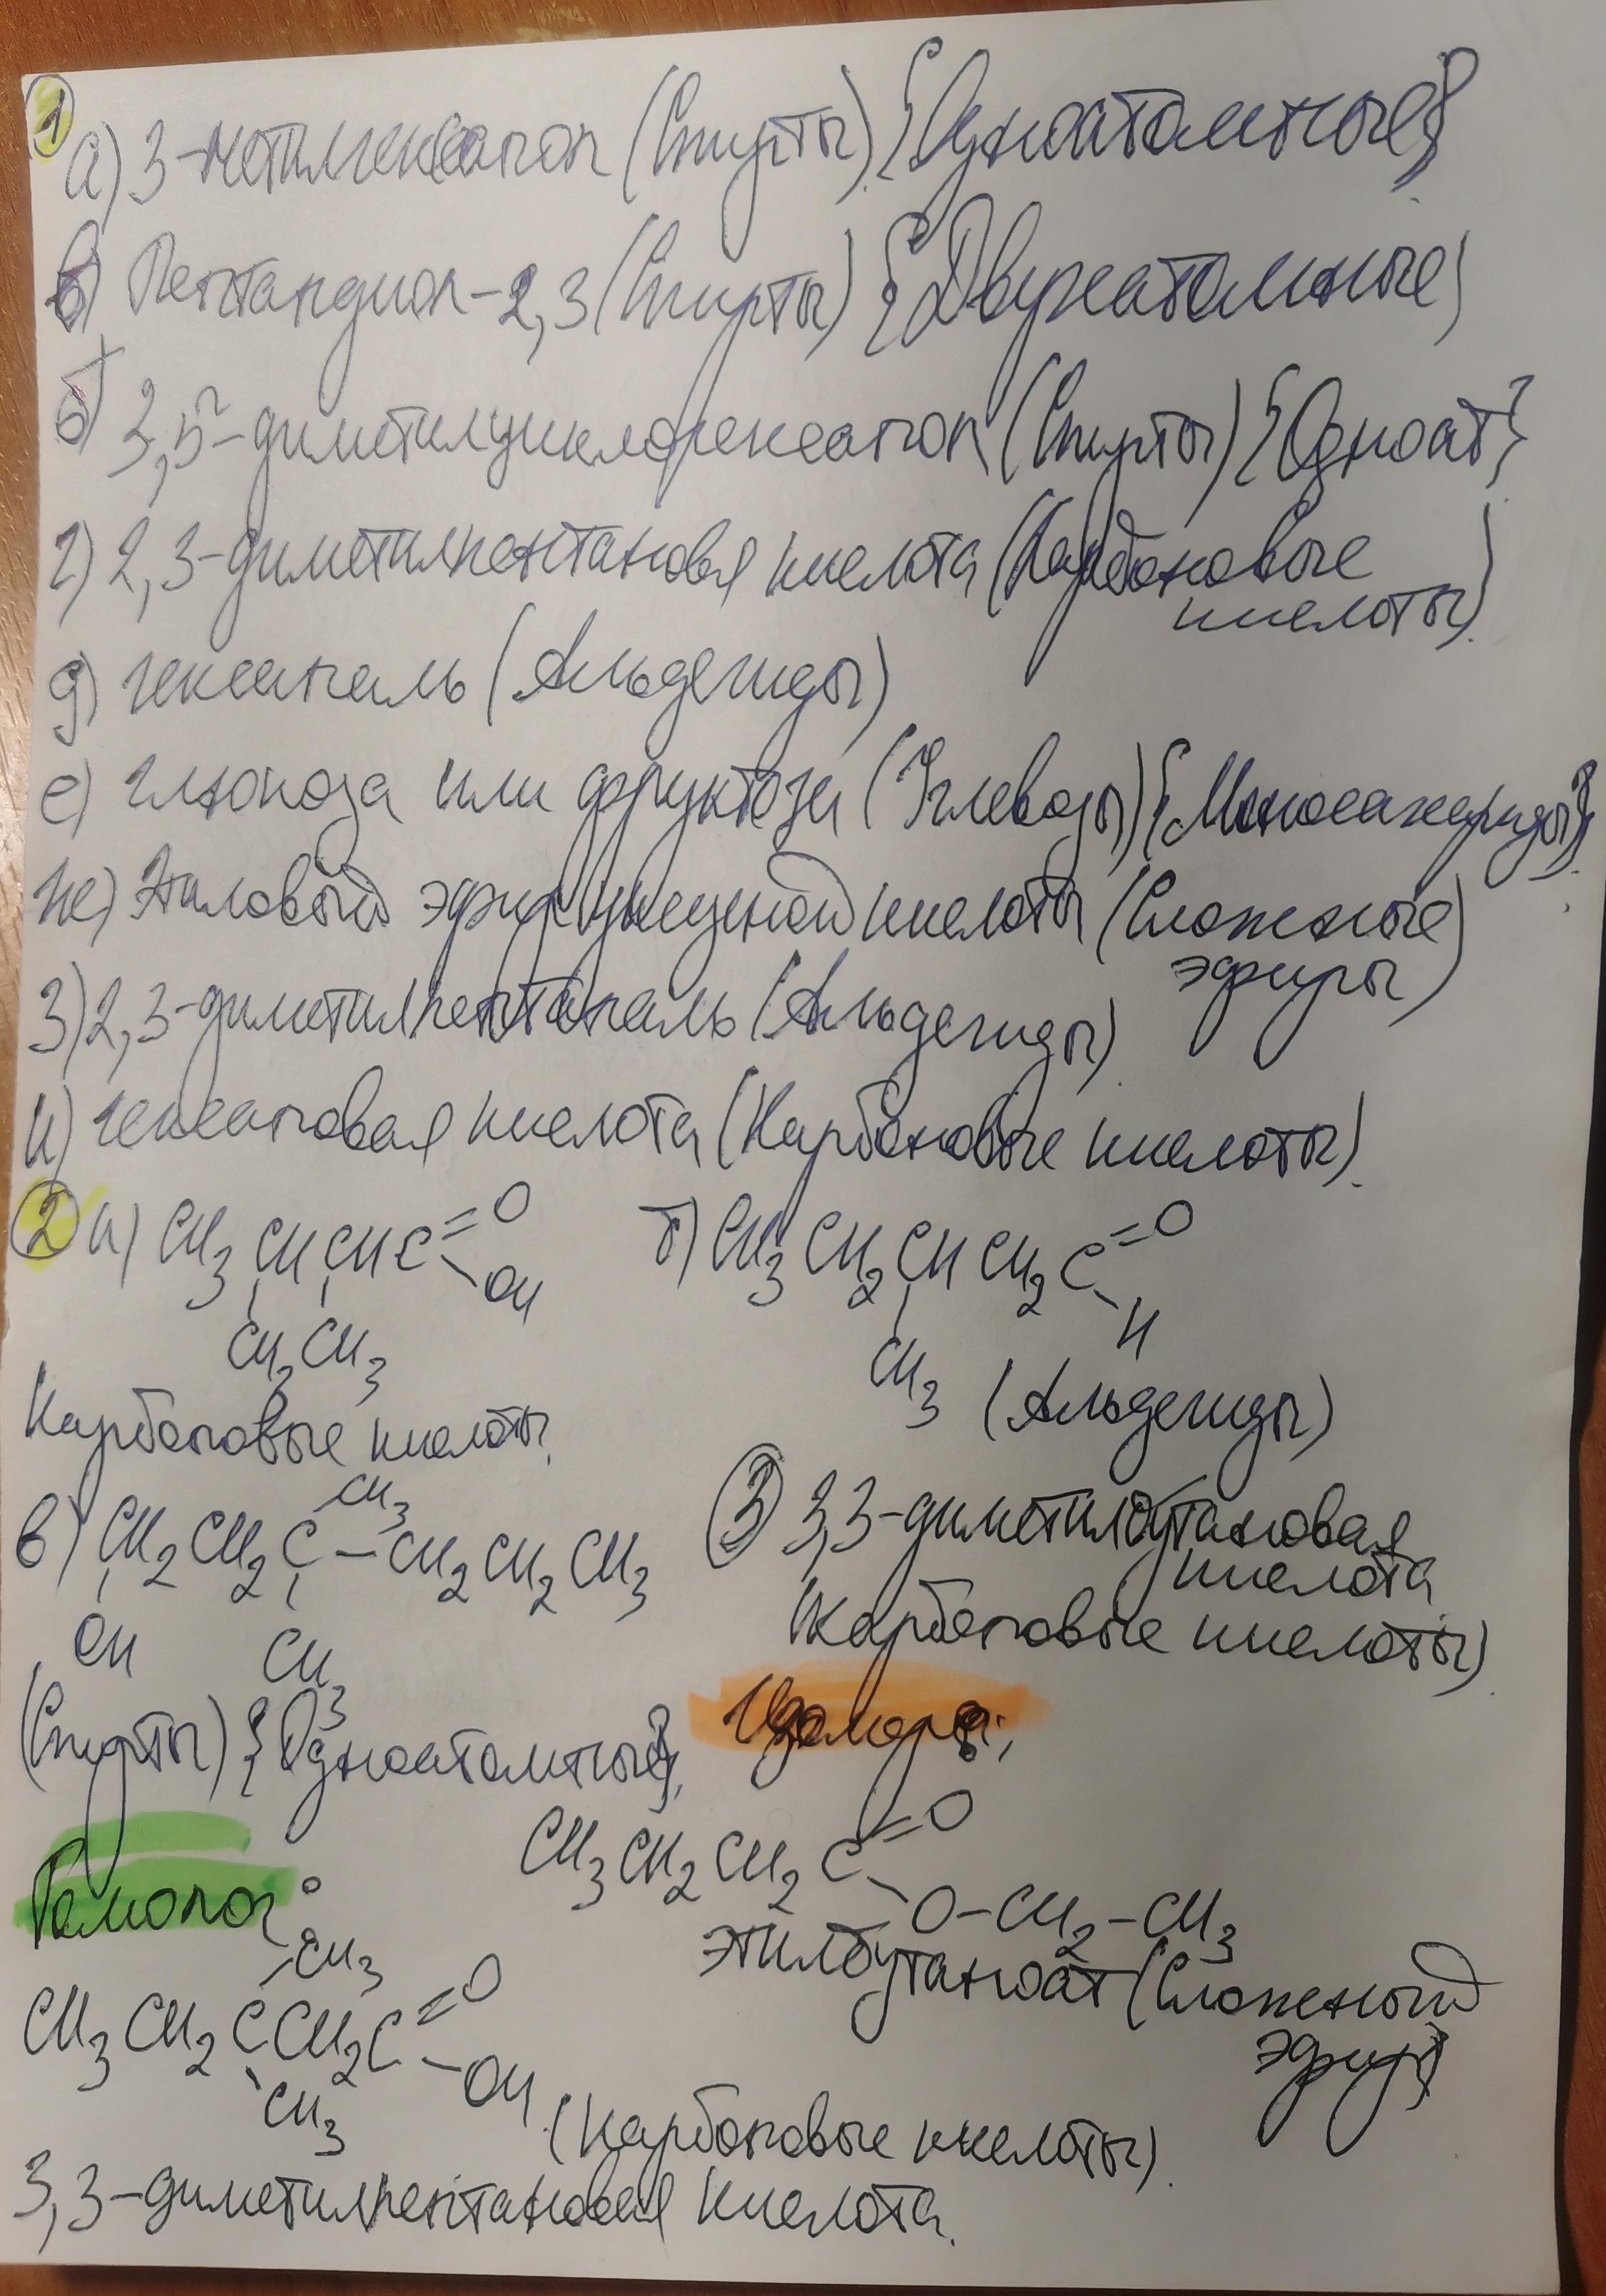 1
а) 3-метилгексанол (Спирты) {Одноатомные}
в) Пентандиол-2,3 (Спирты) {Двухатомные}
б) 3,5-диметилциклогексанол (Спирты) {Одноат}
г) 2,3-диметилпентановая кислота (Карбоновые
кислоты).
д) гексаналь (Альдегиды)
е) глюкоза или фруктоза (Углеводы) {Моносахариды}.
ж) Этиловый эфир уксусной кислоты (Сложные
эфиры)
з) 2,3-диметилпентаналь (Альдегиды).
и) гексановая кислота (Карбоновые кислоты).
2 а) CH3 CH CH C =O
OH
CH3 CH3
Карбоновые кислоты.
б) CH3 CH2 CH CH2 C =O
H
CH3 (Альдегиды)
CH3
в) CH2 CH2 C – CH2 CH2 CH3
OH CH3
(Спирты) {Одноатомные}.
3 3,3-диметилбутановая
кислота
(карбоновые кислоты).
Изомеры:
CH3 CH2 CH2 C =O
O–CH2–CH3
этилбутаноат (Сложный
эфир)
Гомолог:
CH3
CH3 CH2 C CH2 C =O
OH
CH3
(Карбоновые кислоты).
3,3-диметилпентановая кислота.